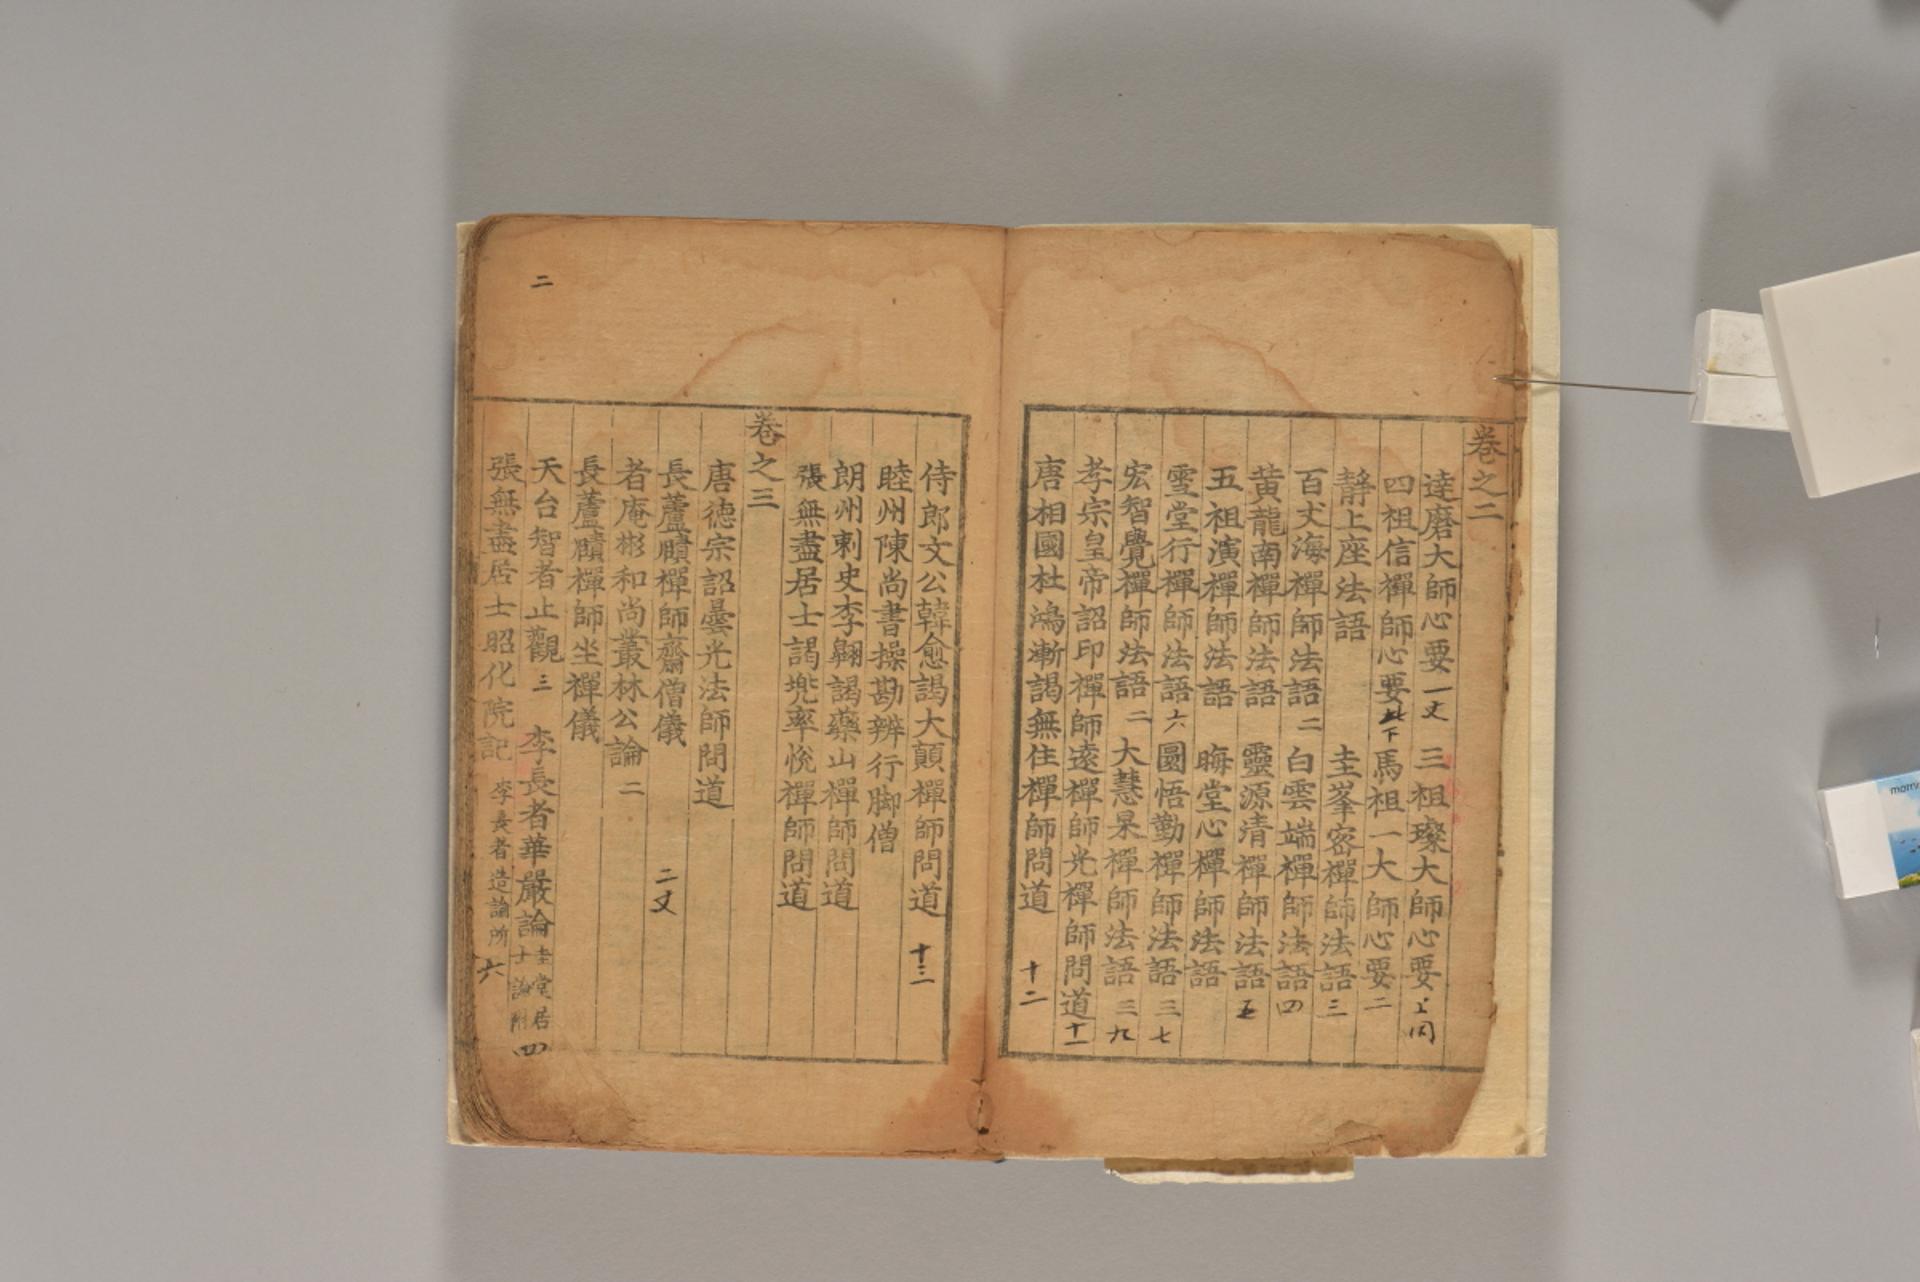 卷之二
達磨大師心要 一丈 三祖璨大師心要 上仝
四祖信禪師心要 此下 馬祖一大師心要 二
靜上座法語 圭峯密禪師法語 三
百丈海禪師法語 二 白雲端禪師法語 四
黃龍南禪師法語 靈源清禪師法語 五
五祖演禪師法語 晦堂心禪師法語
雪堂行禪師法語 六 圜悟勤禪師法語 三七
宏智覺禪師法語 二 大慧杲禪師法語 三九
孝宗皇帝詔印禪師遠禪師光禪師問道 十一
唐相國杜鴻漸謁無住禪師問道 十二
侍郎文公韓愈謁大顛禪師問道 十三
睦州陳尚書操勘辨行脚僧
朗州刺史李翺謁藥山禪師問道
張無盡居士謁兜率悅禪師問道
卷之三
唐德宗詔曇光法師問道
長蘆賾禪師齋僧儀 二丈
者庵彬和尚叢林公論 二
長蘆賾禪師坐禪儀
二
天台智者止觀 三 李長者華嚴論 圭堂居士論附 四
張無盡居士昭化院記 李長者造論所 六